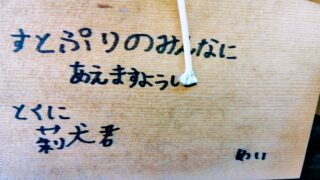 すとぷりのみんなに
あえますように
とくに
莉犬君
めい